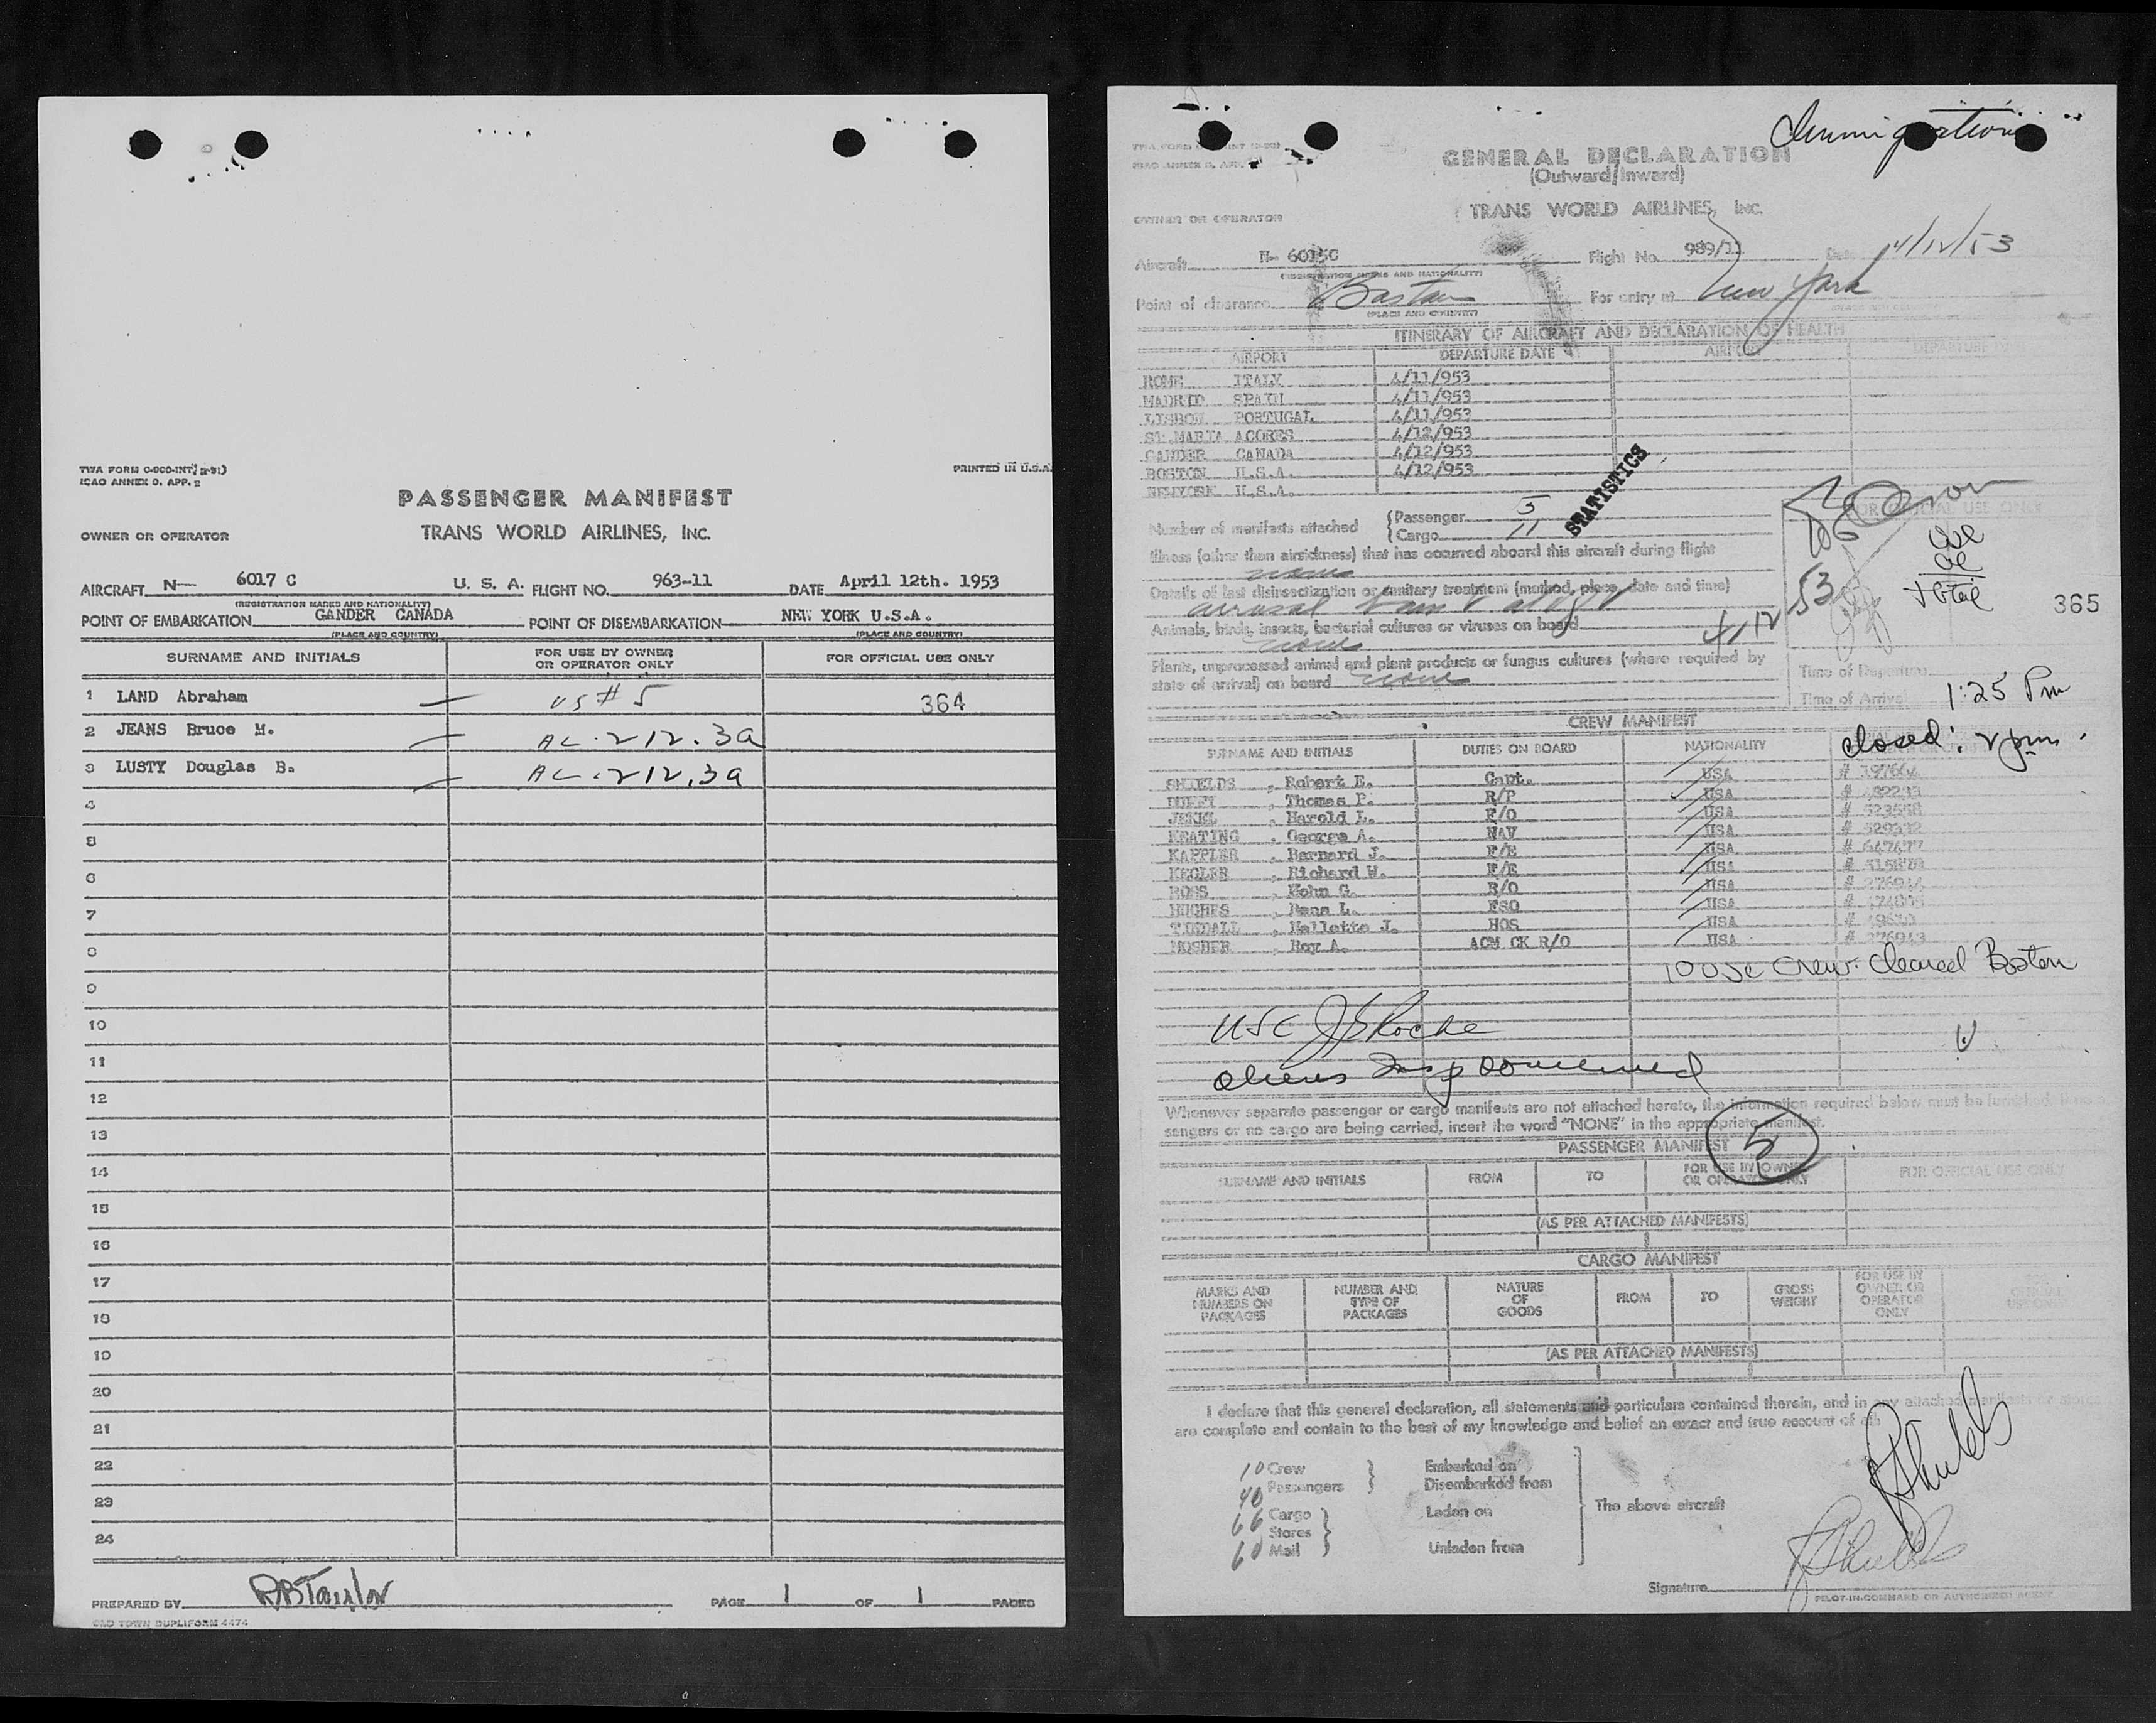 TWA FORM C-900-INT
ICAO ANNEX 9. APP. 2
PRINTED IN U.S.A.
PASSENGER MANIFEST
OWNER OR OPERATOR
TRANS WORLD AIRLINES, INC.
AIRCRAFT N— 6017 C U. S. A. FLIGHT NO. 963-11 DATE April 12th. 1953
(REGISTRATION MARKS AND NATIONALITY)
POINT OF EMBARKATION GANDER CANADA POINT OF DISEMBARKATION NEW YORK U.S.A.
(PLACE AND COUNTRY) (PLACE AND COUNTRY)
SURNAME AND INITIALS FOR USE BY OWNER OR OPERATOR ONLY FOR OFFICIAL USE ONLY
1 LAND Abraham — US # 5 364
2 JEANS Bruce M. — AL.212.3a
3 LUSTY Douglas B. — AL.212.3a
4
5
6
7
8
9
10
11
12
13
14
15
16
17
18
19
20
21
22
23
24
PREPARED BY RBTaylor PAGE 1 OF 1 PAGES
OLD TOWN DUPLIFORM 4474
Immigration
GENERAL DECLARATION
(Outward/Inward)
OWNER OR OPERATOR
TRANS WORLD AIRLINES, Inc.
Aircraft N- 6015C Flight No. 989/11 Date 4/12/53
(REGISTRATION MARKS AND NATIONALITY)
Point of clearance Boston For entry at New York
(PLACE AND COUNTRY)
ITINERARY OF AIRCRAFT AND DECLARATION OF HEALTH
AIRPORT DEPARTURE DATE AIRPORT DEPARTURE
ROME ITALY 4/11/953
MADRID SPAIN 4/11/953
LISBON PORTUGAL 4/11/953
ST.MARIA ACORES 4/12/953
GANDER CANADA 4/12/953
BOSTON U.S.A. 4/12/953
NEWYORK U.S.A.
STATISTICS
Number of manifests attached {Passenger 5
{Cargo 11
FOR OFFICIAL USE ONLY
Illness (other than airsickness) that has occurred aboard this aircraft during flight
none
Details of last disinsectization or sanitary treatment (method, place, date and time)
total
365
Animals, birds, insects, bacterial cultures or viruses on board
none
4/12/53
Plants, unprocessed animal and plant products or fungus cultures (where required by
state of arrival) on board none
Time of Departure
Time of Arrival 1:25 Pm
closed: 2 pm.
CREW MANIFEST
SURNAME AND INITIALS DUTIES ON BOARD NATIONALITY
SHIELDS , Robert E. Capt. USA
DUFFY , Thomas P. R/P USA
JEKEL , Harold L. F/O USA
KEATING , George A. NAV USA
KAPPLER , Bernard J. F/E USA
KEGLER , Richard W. F/E USA
ROSS , Mohn G. R/O USA
HUGHES , Dana L. FSO USA
, Hallette J. HOS USA
MOSHER , Roy A. ACM CK R/O USA
10 USC Crew. Cleared Boston
USC Roche
aliens
Whenever separate passenger or cargo manifests are not attached hereto, the information required below must be furnished.
sengers or no cargo are being carried, insert the word "NONE" in the appropriate manifest.
5
PASSENGER MANIFEST
SURNAME AND INITIALS FROM TO FOR USE BY OWNER OR OPERATOR ONLY FOR OFFICIAL USE ONLY
(AS PER ATTACHED MANIFESTS)
CARGO MANIFEST
MARKS AND NUMBERS ON PACKAGES NUMBER AND TYPE OF PACKAGES NATURE OF GOODS FROM TO GROSS WEIGHT FOR USE BY OWNER OR OPERATOR ONLY
(AS PER ATTACHED MANIFESTS)
I declare that this general declaration, all statements and particulars contained therein, and in any attached manifests
are complete and contain to the best of my knowledge and belief an exact and true account of all
10 Crew
40 Passengers
Embarked on
Disembarked from
66 Cargo
Stores
60 Mail
Laden on
Unladen from
The above aircraft
RShields
RShields
Signature
PILOT-IN-COMMAND OR AUTHORIZED AGENT